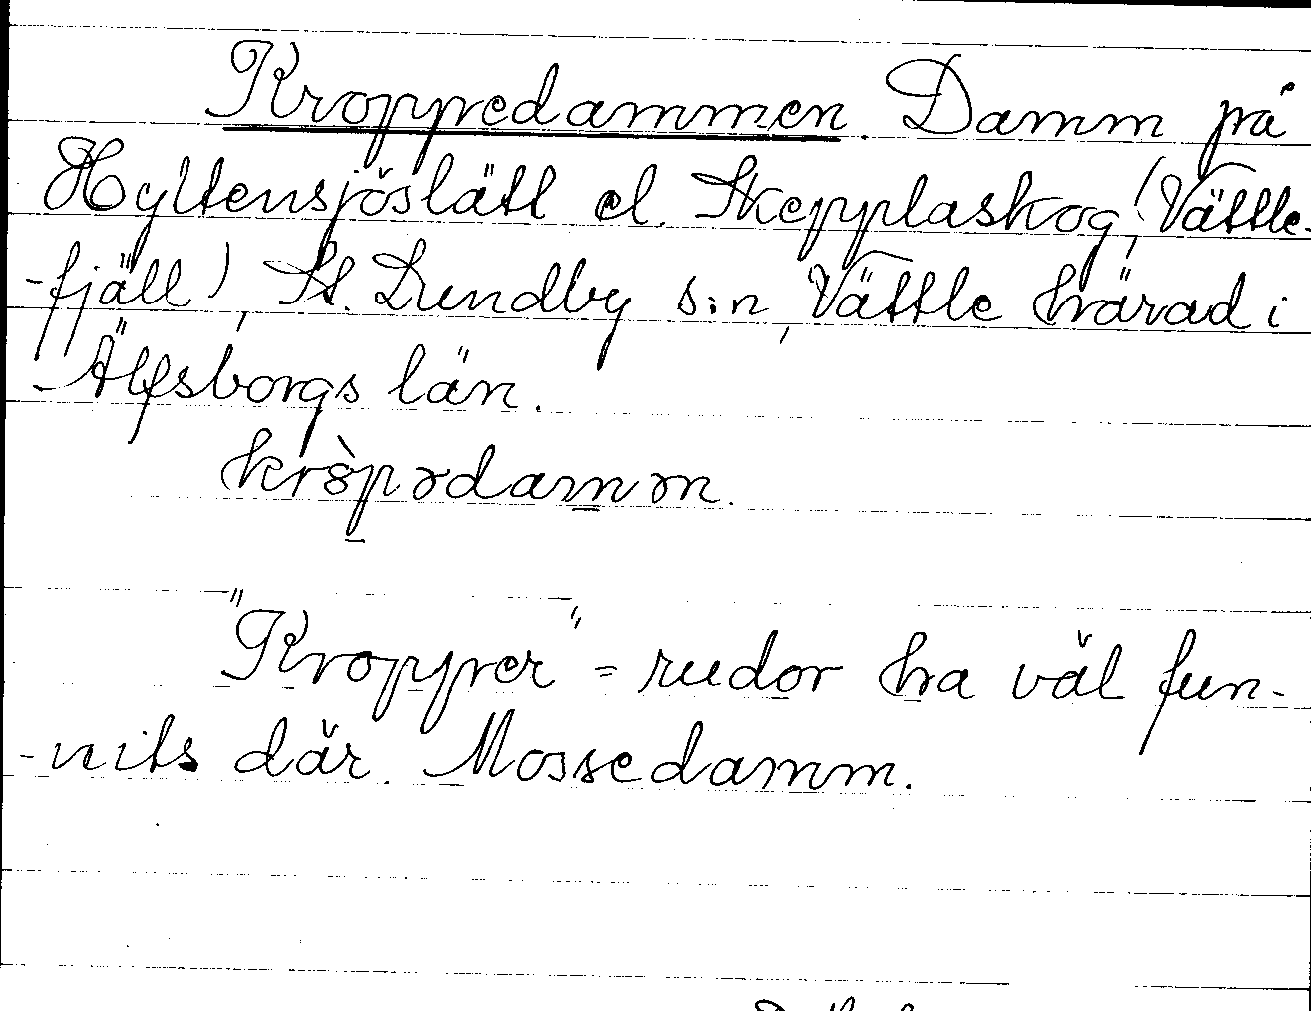 Kroppedammen. Damm på
Hyltensjöslätt el. Skepplaskog, (Vättle-
-fjäll), St. Lundby s:n, Vättle härad i
Älfsborgs län.
kròpədamm.
"Kropper" = rudor ha väl fun-
-nits där. Mossedamm.